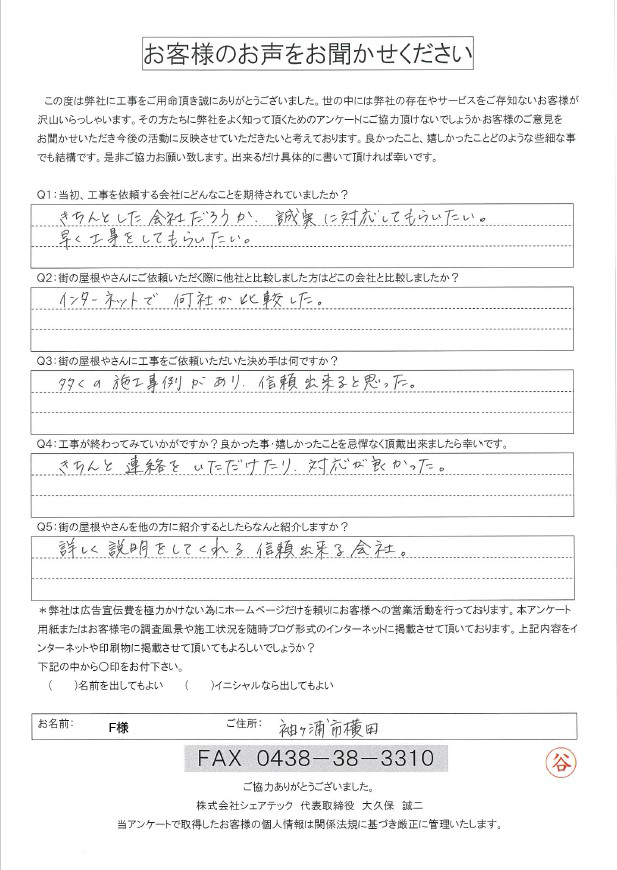 お客様のお声をお聞かせください
この度は弊社に工事をご用命頂き誠にありがとうございました。世の中には弊社の存在やサービスをご存知ないお客様が
沢山いらっしゃいます。その方たちに弊社をよく知って頂くためのアンケートにご協力頂けないでしょうかお客様のご意見を
お聞かせいただき今後の活動に反映させていただきたいと考えております。良かったこと、嬉しかったことどのような些細な事
でも結構です。是非ご協力お願い致します。出来るだけ具体的に書いて頂ければ幸いです。
Q1:当初、工事を依頼する会社にどんなことを期待されていましたか？
きちんとした会社だろうか、誠実に対応してもらいたい。
早く工事をしてもらいたい。
Q2:街の屋根やさんにご依頼いただく際に他社と比較しました方はどこの会社と比較しましたか？
インターネットで何社か比較した。
Q3:街の屋根やさんに工事をご依頼いただいた決め手は何ですか？
多くの施工事例があり、信頼出来ると思った。
Q4:工事が終わってみていかがですか？良かった事・嬉しかったことを忌憚なく頂戴出来ましたら幸いです。
きちんと連絡をいただけたり、対応が良かった。
Q5:街の屋根やさんを他の方に紹介するとしたらなんと紹介しますか？
詳しく説明をしてくれる信頼出来る会社。
＊弊社は広告宣伝費を極力かけない為にホームページだけを頼りにお客様への営業活動を行っております。本アンケート
用紙またはお客様宅の調査風景や施工状況を随時ブログ形式のインターネットに掲載させて頂いております。上記内容をイ
ンターネットや印刷物に掲載させて頂いてもよろしいでしょうか？
下記の中から○印をお付下さい。
（　　）名前を出してもよい　　（　　）イニシャルなら出してもよい
お名前：　F様　ご住所：　袖ヶ浦市横田
FAX 0438－38－3310
谷
ご協力ありがとうございました。
株式会社シェアテック　代表取締役　大久保　誠二
当アンケートで取得したお客様の個人情報は関係法規に基づき厳正に管理いたします。